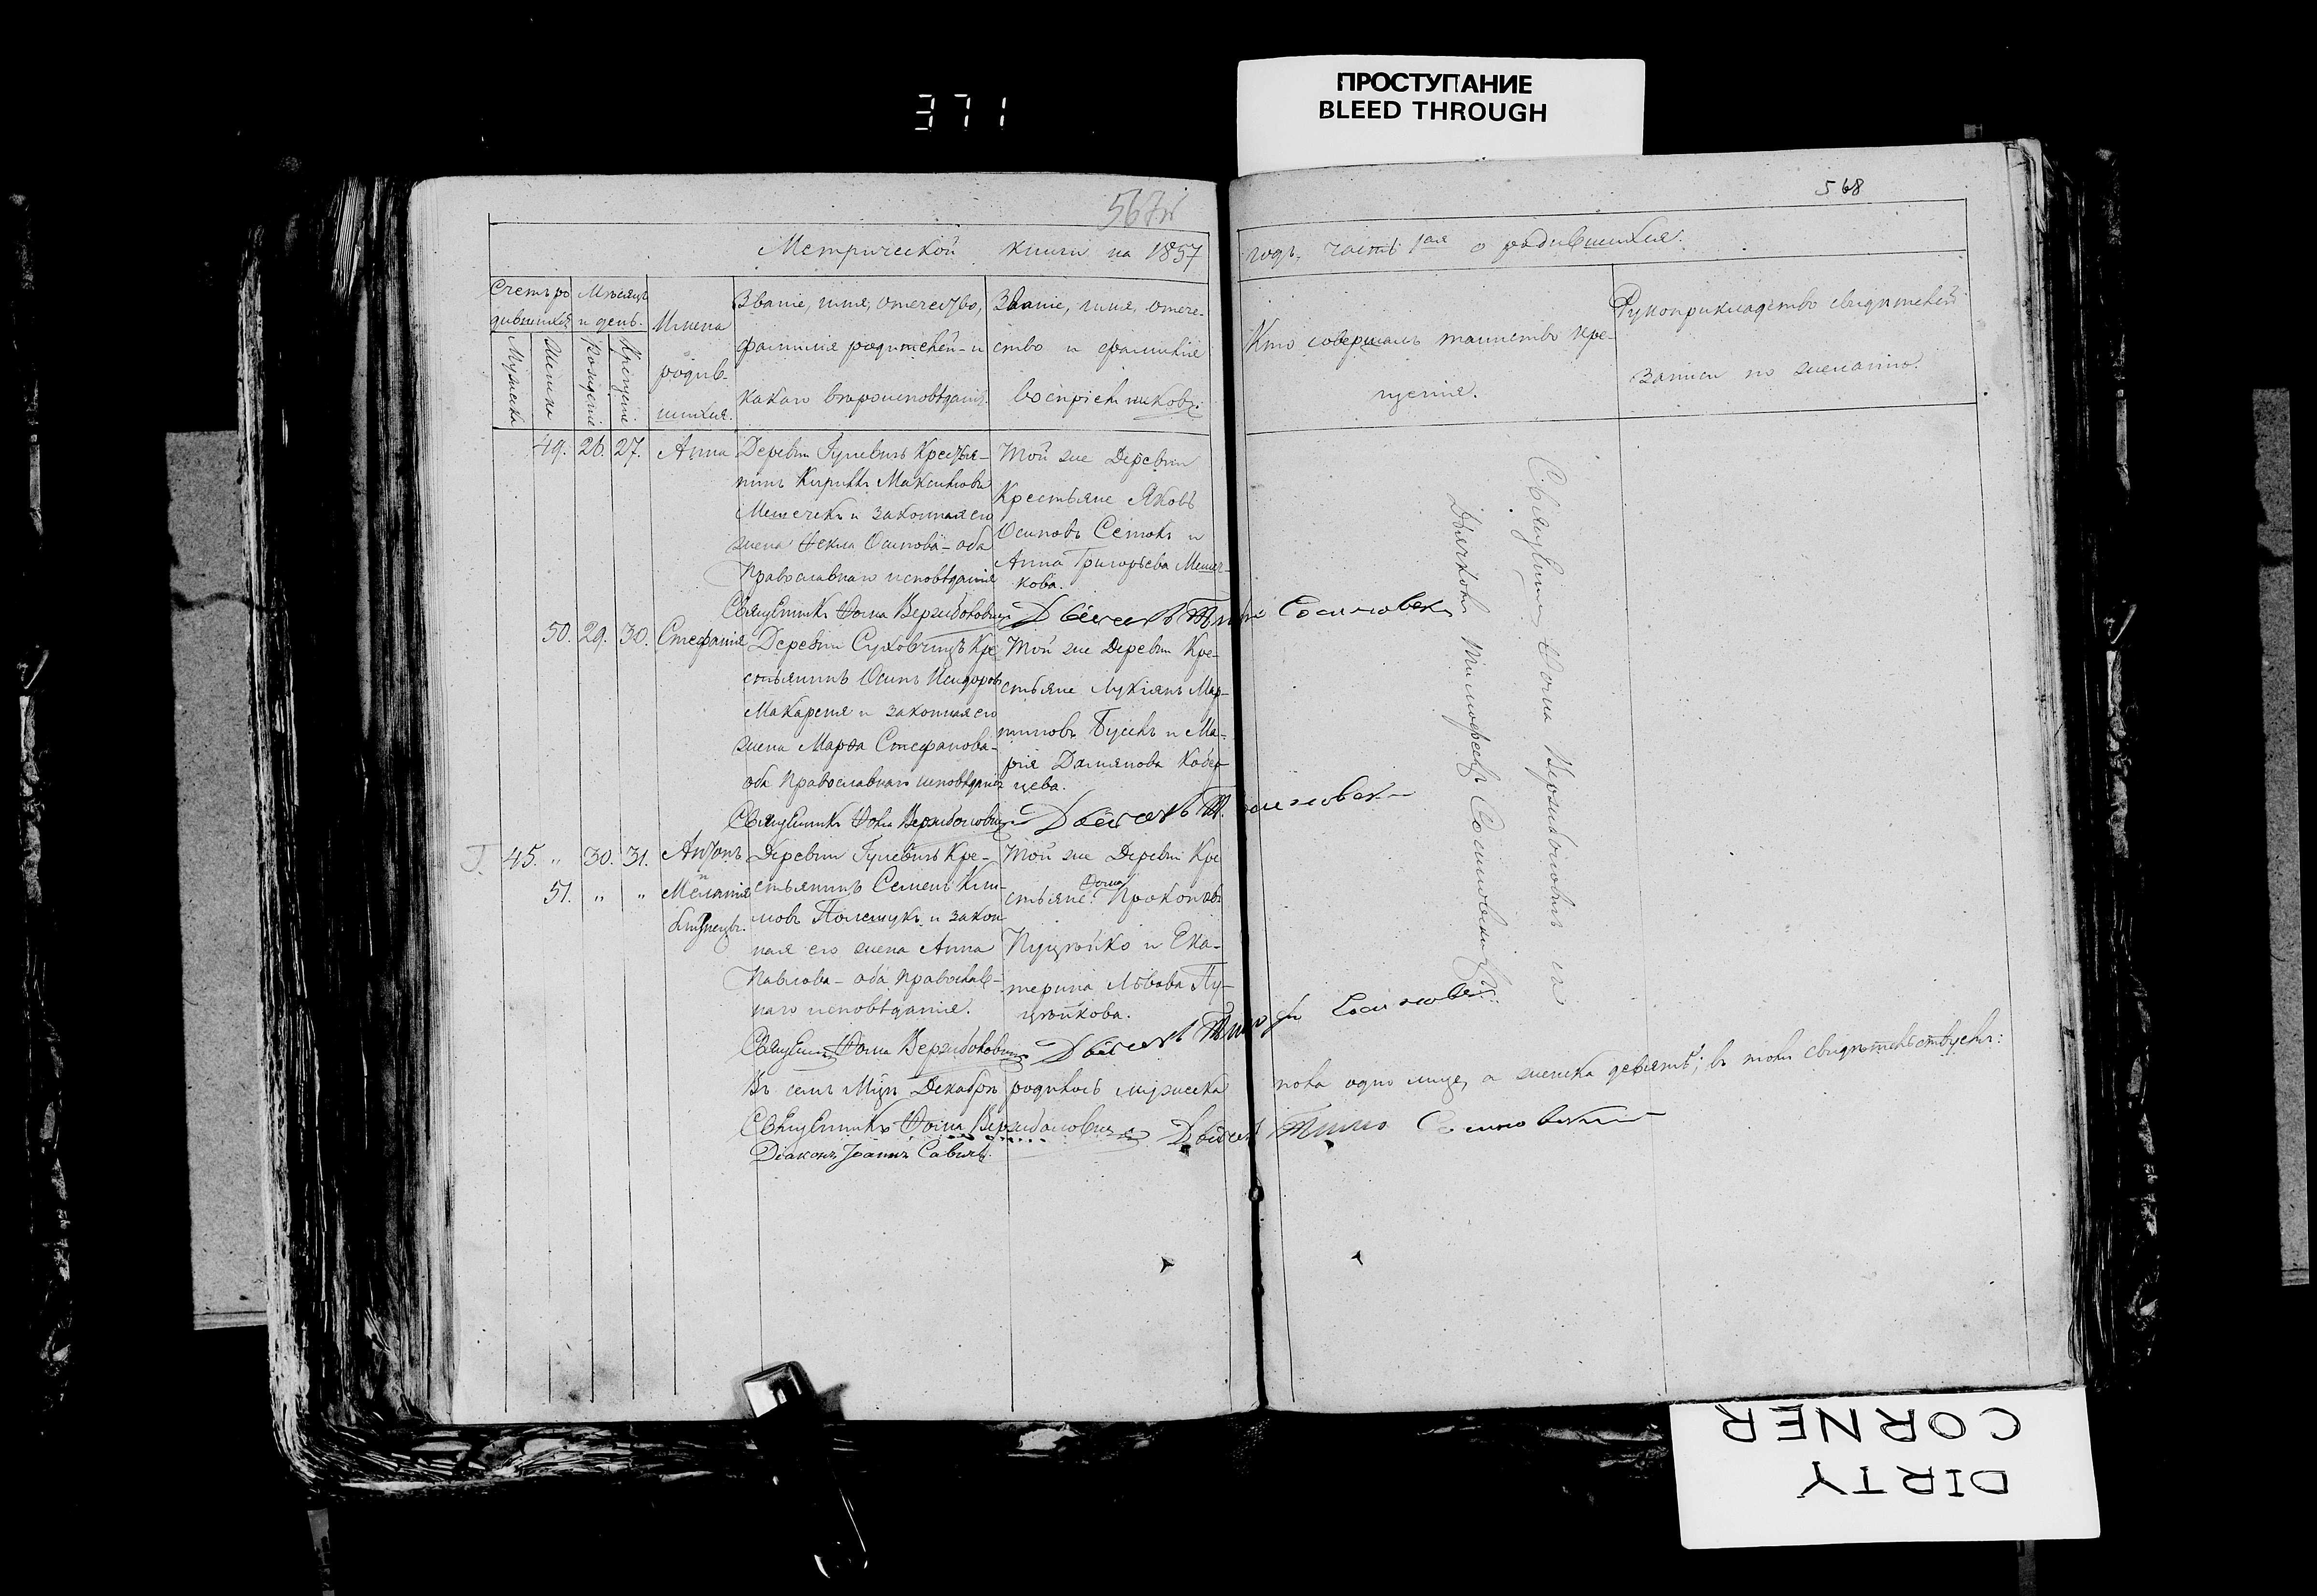 371
ПРОСТУПАНИЕ
BLEED THROUGH
568
Метрической книги на 1857 годъ, часть 1ая о родившихся.
Счетъ ро
дившихся
Мѣсяцъ
и день.
Мужеска
Женска
Рожденіе
Крещеніе
Имена
родив-
шихся.
Званіе, имя, отечество,
фамилія родителей и
какого вѣроисповѣданія.
Званіе, имя, отече-
ство и фамилія
воспріемниковъ.
Кто совершалъ таинство кре-
щенія.
Рукоприкладство свидѣтелей
записи по желанію.
49. 26. 27. Анна
Деревни Гулевичъ Крестья-
нинъ Кириллъ Максимовъ
и законная его
жена Ѳекла Осипова - оба
Православнаго исповѣданія
Той же Деревни
Крестьяне Яковъ
Осиповъ и
Анна Григорьева
кова.
Священникъ Ѳома Вержболовичъ Дьячекъ Сосиновскій
50. 29. 30. Стефанія
Деревни Суховчицъ Кре
стьянинъ Осипъ Исидоровъ
Макареня и законная его
жена Марѳа Стефанова -
оба Православнаго исповѣданія
Той же Деревни Кре-
стьяне Лукіянъ Мар-
тиновъ и Ма-
рія Даміянова
цева.
Священникъ Ѳома Вержболовичъ Дьячекъ Т. Сосиновскій
45. " 30. 31. Антонъ
и
51. " " Меланія
близнецы.
Деревни Гулевичъ Кре-
стьянинъ Семенъ Кли-
мовъ Полещукъ и закон
ная его жена Анна
Павлова - оба Православ-
наго исповѣданія.
Той же Деревни Кре
стьяне Ѳома Прокопьевъ
Пуцейко и Ека-
терина Львова Пу-
цейкова.
Священникъ Ѳома Вержболовичъ Дьячекъ Тимофей Сосиновскій
Священникъ Ѳома Вержболовичъ съ
Дьячкомъ Тимофеемъ Сосиновскимъ
Въ семъ Мцѣ Декабрѣ родилось мужеска пола одно лице, а женска девять; въ томъ свидѣтельствуемъ:
Священникъ Ѳома Вержболовичъ Дьячекъ Тимо Сосиновскій
Діаконъ Іоаннъ Савичъ.
DIRTY
CORNER